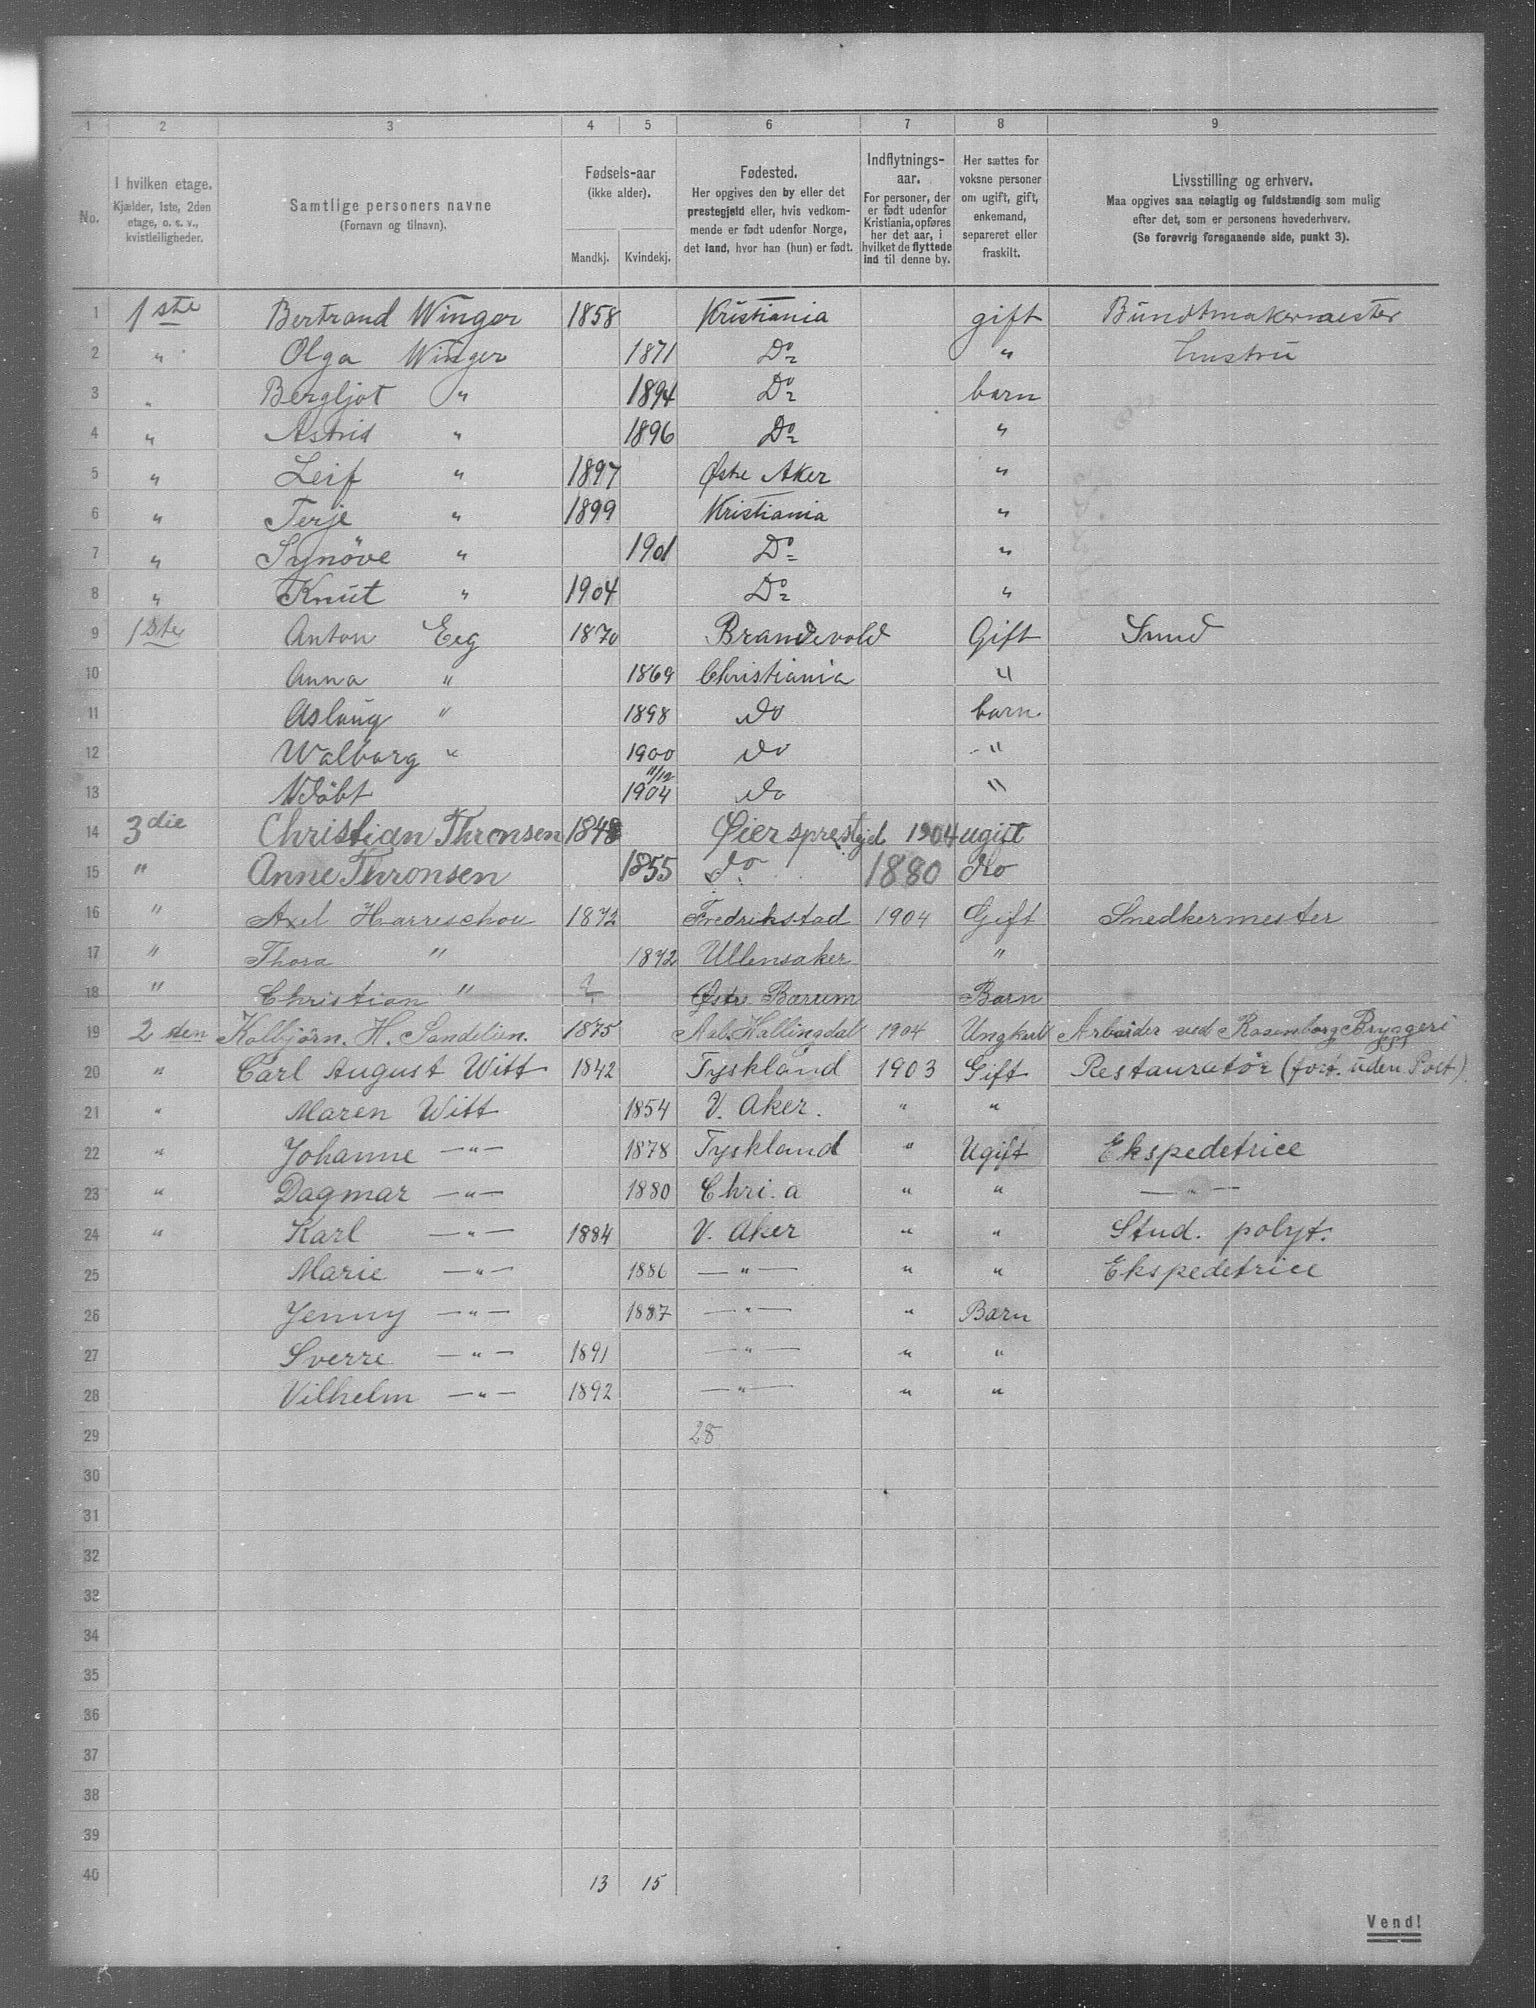 1 2 3 4 5 6 7 8 9
No.
I hvilken etage.
Kjælder, 1ste, 2den
etage, o. s. v.,
kvistleiligheder.
Samtlige personers navne
(Fornavn og tilnavn).
Fødsels-aar
(ikke alder).
Mandkj. Kvindekj.
Fødested.
Her opgives den by eller det
prestegjeld eller, hvis vedkom-
mende er født udenfor Norge,
det land, hvor han (hun) er født.
Indflytnings-
aar.
For personer, der
er født udenfor
Kristiania, opføres
her det aar, i
hvilket de flyttede
ind til denne by.
Her sættes for
voksne personer
om ugift, gift,
enkemand,
separeret eller
fraskilt.
Livsstilling og erhverv.
Maa opgives saa nøiagtig og fuldstændig som mulig
efter det, som er personens hovederhverv.
(Se forøvrig foregaaende side, punkt 3).
1 1ste Bertrand Winger 1858 Kristiania gift Bundtmakermester
2 " Olga Winger 1871 Do " hustru
3 " Bergljot " 1894 Do barn
4 " Astrid " 1896 Do "
5 " Leif " 1897 Østre Aker "
6 " Terje " 1899 Kristiania "
7 " Synöve " 1901 Do "
8 " Knut " 1904 Do "
9 1ste Anton Eeg 1870 Brandevold Gift Smed
10 Anna " 1869 Christiania "
11 Aslaug " 1898 do barn
12 Walborg " 1900 do "
13 Udöbt 11/12 1904 do "
14 3die Christian Thronsen 1848 Øiersprestgjel 1904 ugift
15 " Anne Thronsen 1855 do 1880 do
16 " Axel Harreschou 1872 Fredrikstad 1904 Gift Snedkermester
17 " Thora " 1872 Ullensaker "
18 " Christian " Østre Barum Barn
19 2den Kolbjörn. H. Sandelien. 1875 Aal. Hallingdal 1904 Ungkarl Arbeider ved Rosenborg Bryggeri
20 " Carl August Witt 1842 Tyskland 1903 Gift Restauratør (fort. uden Port)
21 " Maren Witt 1854 V. Aker. " "
22 " Johanne —"— 1878 Tyskland " Ugift Ekspedetrice
23 " Dagmar —"— 1880 Chri.a " " —"—
24 " Karl —"— 1884 V. Aker " " Stud. polyt.
25 Marie —"— 1886 —"— " " Ekspedetrice
26 Jenny —"— 1887 —"— " Barn
27 Sverre —"— 1891 —"— " "
28 Vilhelm —"— 1892 —"— " "
29 28
30
31
32
32
34
35
36
37
38
39
40 13 15
Vend!